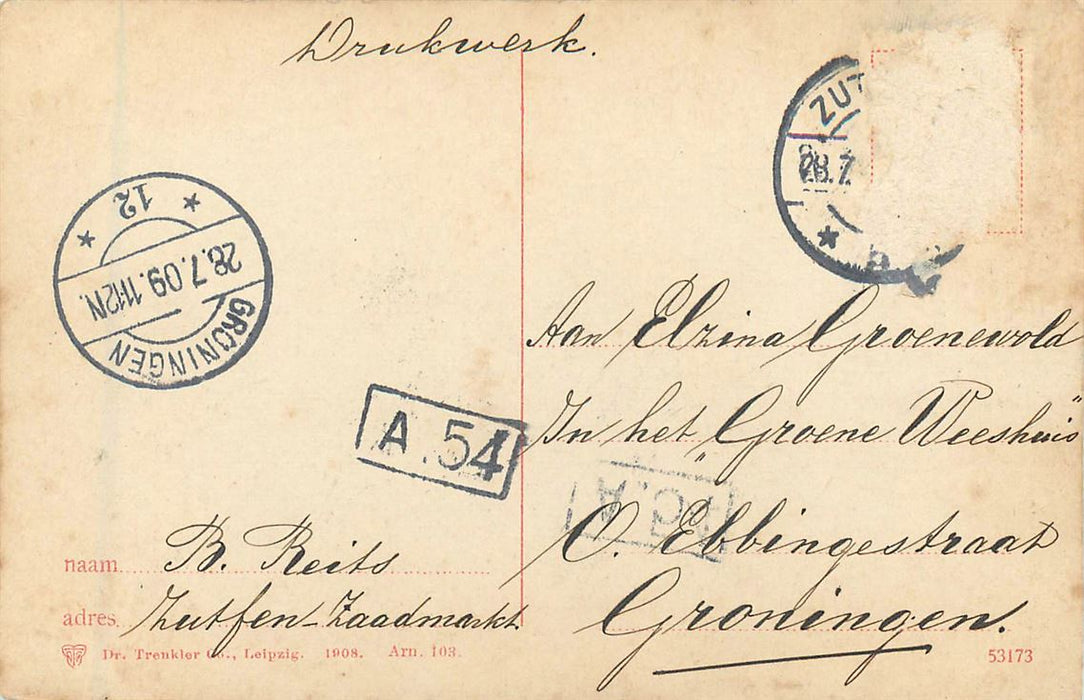 Drukwerk.
ZUT
28.7
12
28.7.09.11-12N.
GRONINGEN
Aan Elzina Groenewold
In het "Groene Weeshuis"
A.54
O. Ebbingestraat
Groningen.
naam B. Reits
adres Zutfen-Zaadmarkt
Dr. Trenkler Co., Leipzig. 1908. Arn. 103.
53173